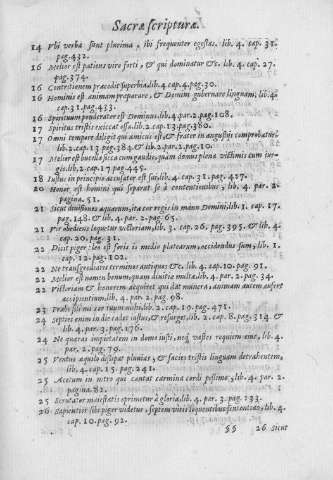 Sacræ scripturæ.
14 Vbi verba sunt plurima, ibi frequenter egestas. lib. 4. cap. 38.
pag. 432.
16 Melior est patiens viro forti, & qui dominatur &c. li. 4. cap. 27.
pag. 374.
16 Contritionem præcedit superbia, lib. 4. cap. 4. pag. 30.
16 Hominis est animam præparare, & Domini gubernare linguam, lib. 4.
cap. 31. pag. 433.
16 Spirituum ponderator est Dominus, lib. 4. par. 2. pag. 108.
17 Spiritus tristis exiccat ossa. lib. 2. cap. 13. pag. 360.
17 Omni tempore diligit qui amicus est, & frater in angustiis comprobatur
lib. 2. cap. 13. pag. 384. & lib. 2. par. 2. pag. 10.
17 Melior est buccella sicca cum gaudio, quam domus plena victimis cum iur-
gio. lib. 2. cap. 17. pag. 445.
18 Iustus in principio accusator est sui, lib. 4. cap. 31. pag. 417.
20 Honor est homini qui separat se à contentionibus, lib. 4. par. 2.
pagina. 51.
21 Sicut divisiones aquarum, ita cor regis in manu Domini, lib. 1. cap. 17.
pag. 148. & lib. 4. par. 2. pag. 65.
21 Vir obediens loquetur victoriam, lib. 3. cap. 26. pag. 395, & lib. 4.
cap. 20. pag. 31.
22 Dicit piger: leo est foris in medio platearum, occidendus sum, lib. 1.
cap. 12. pag. 102.
22 Ne transgrediaris terminos antiquos &c. lib. 4. cap. 10. pag. 91.
22 Melius est nomen bonum, quam divitiæ multæ. lib. 4. par. 2. pag. 34.
22 Victoriam & honorem acquiret qui dat munera, animam autem aufert
accipientium, lib. 4. par. 2. pag. 98.
23 Præbe fili mi cor tuum mihi, lib. 2. cap. 19. pag. 471.
24 Septies enim in die cadet iustus, & resurget, lib. 2. cap. 8. pag. 314 &
lib. 4. par. 3. pag. 176.
24 Ne quæras impietatem in domo iusti, neq; vastes requiem eius, lib. 4.
par. 2. pag. 79.
25 Ventus aquilo dissipat pluvias, & facies tristis linguam detrahentem,
lib. 4. cap. 15. pag. 241.
25 Acetum in nitro qui cantat carmina cordi pessimo, lib. 4. par. 2.
pagina. 82.
25 Scrutator maiestatis opprimetur à gloria, lib. 4. par. 3. pag. 133.
26 Sapientior sibi piger videtur, septem viris loquentibus sententias, lib. 4.
cap. 10. pag. 92.
§§ 26 Sicut